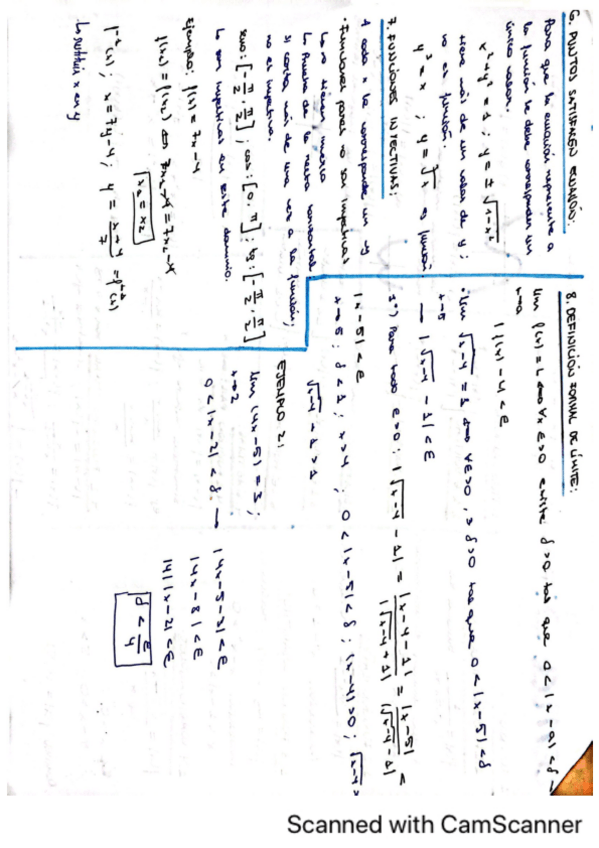 6. PUNTOS SATISFACEN ECUACIÓN:
Para que la ecuación represente a
la función le debe corresponder un
único valor.
x² + y² = 1 ; y = ± √1-x²
tiene más de un valor de y ;
no es función.
y³ = x ; y = ∛x es función
7. FUNCIONES INYECTIVAS:
A cada x le corresponde un y
· Funciones pares no son inyectivas
↳ Prueba de la recta horizontal
si corta más de una vez a la función;
no es inyectiva.
seno: [-π/2, π/2] ; cos: [0, π] ; tg: [-π/2, π/2]
↳ son inyectivas en este dominio.
Ejemplo: f(x) = 7x-4
f(x₁) = f(x₂) ⇔ 7x₁-4 = 7x₂-4
x₁ = x₂
f⁻¹(x) ; x = 7y-4 ; y = x+4/7 = f⁻¹(x)
↳ sustituir x en y
8. DEFINICIÓN FORMAL DE LÍMITE:
lim f(x) = L ⇔ ∀ε>0 existe δ>0 tal que 0<|x-a|<δ →
x→a
|f(x)-L|<ε
· lim √x-4 = 1 ⇔ ∀ε>0, ∃δ>0 tal que 0<|x-5|<δ
x→5
→ |√x-4 - 1|<ε
1º) Para todo ε>0 : |√x-4 - 1| = |x-4-1|/|√x-4+1| = |x-5|/|√x-4-1| <
|x-5|<ε
x→5 ; δ<1 ; x>4 ; 0<|x-5|<δ ; |x-4|>0 ; √x-4 >
√x-4 + 1 > 1
EJEMPLO 2:
lim (4x-5) = 3 ;
x→2
0<|x-2|<δ →
|4x-5-3|<ε
|4x-8|<ε
|4||x-2|<ε
δ < ε/4
Scanned with CamScanner